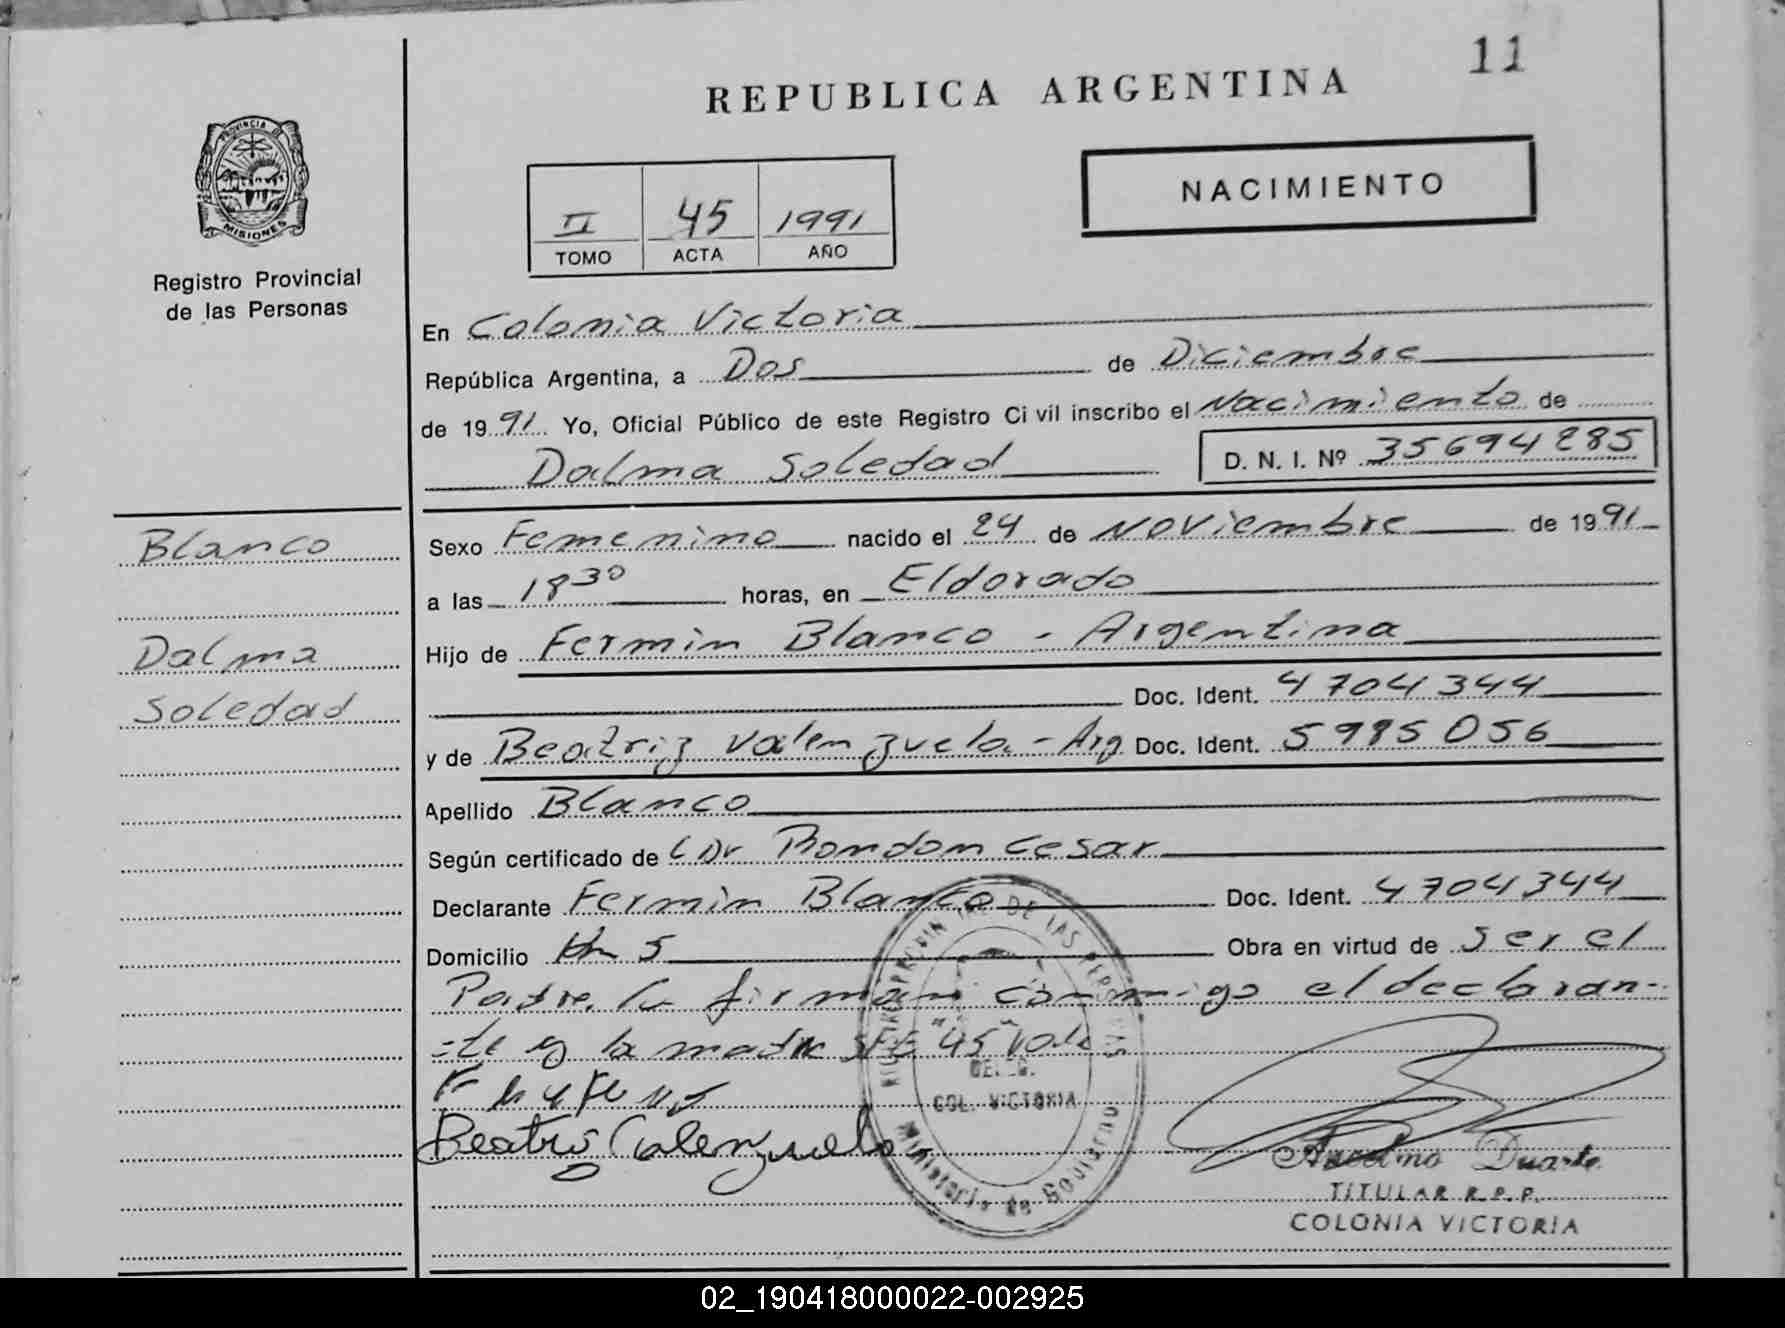 11
REPUBLICA ARGENTINA
PROVINCIA DE
MISIONES
Registro Provincial
de las Personas
NACIMIENTO
II 45 1991
TOMO ACTA AÑO
En Colonia Victoria
República Argentina, a Dos de Diciembre
de 1991 Yo, Oficial Público de este Registro Civil inscribo el Nacimiento de
Dalma Soledad D. N. I. Nº 35694285
Blanco
Dalma
Soledad
Sexo Femenino nacido el 24 de Noviembre de 1991
a las 18 30 horas, en Eldorado
Hijo de Fermin Blanco - Argentina
Doc. Ident. 4704344
y de Beatriz Valenzuela - Arg Doc. Ident. 5995056
Apellido Blanco
Según certificado de Dr Rondon Cesar
Declarante Fermin Blanco Doc. Ident. 4704344
Domicilio Km 5 Obra en virtud de ser el
Padre. firman conmigo el declaran-
-te y la madre "45" Vale
Beatris Valenzuela
REGISTRO PROVINCIAL DE LAS PERSONAS
DELEG.
COL. VICTORIA
Ministerio de Gobierno
Anselmo Duarte
TITULAR R.P.P.
COLONIA VICTORIA
02_190418000022-002925